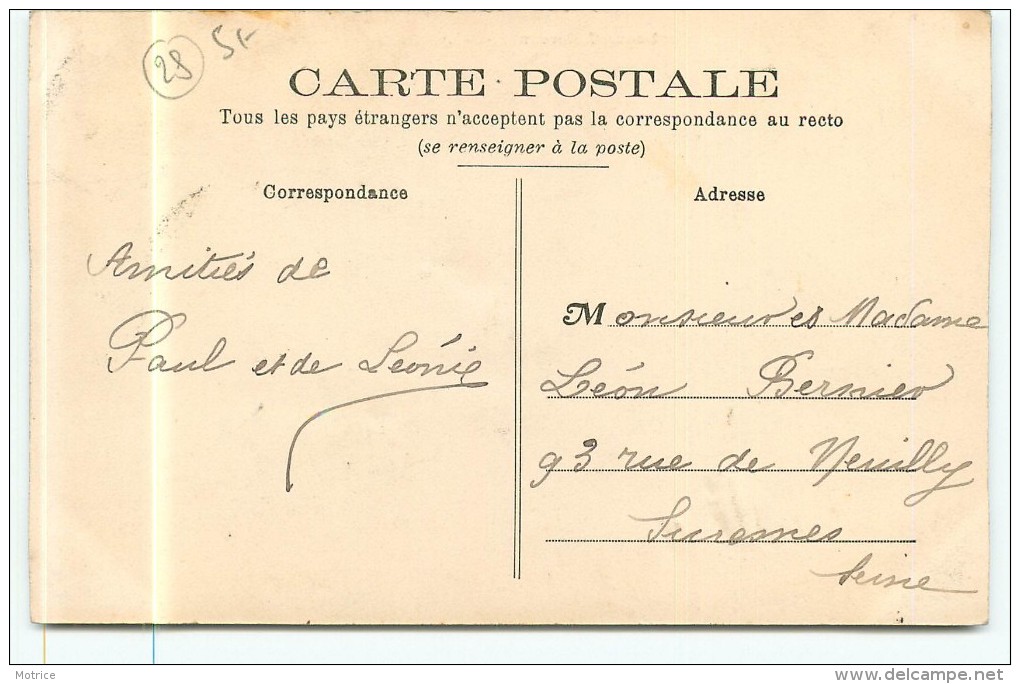 28 5f
CARTE POSTALE
Tous les pays étrangers n'acceptent pas la correspondance au recto
(se renseigner à la poste)
Correspondance
Adresse
Amitiés de
Paul et de Léonie
Monsieur et Madame
Léon Bernier
93 rue de Neuilly
Suresnes
Seine
Motrice
www.delcampe.net